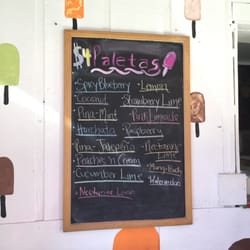 $4 Paletas
- Spicy Blueberry - Lemon
- Coconut - Strawberry Lime
- Pina-Mint - Pink Lemonade
- Horchata - Raspberry
- Pina-Jalapeño - Nectarine-Lime
- Peaches n Cream - Mango
- Cucumber Lime - Watermelon
- Nectarine Lemon